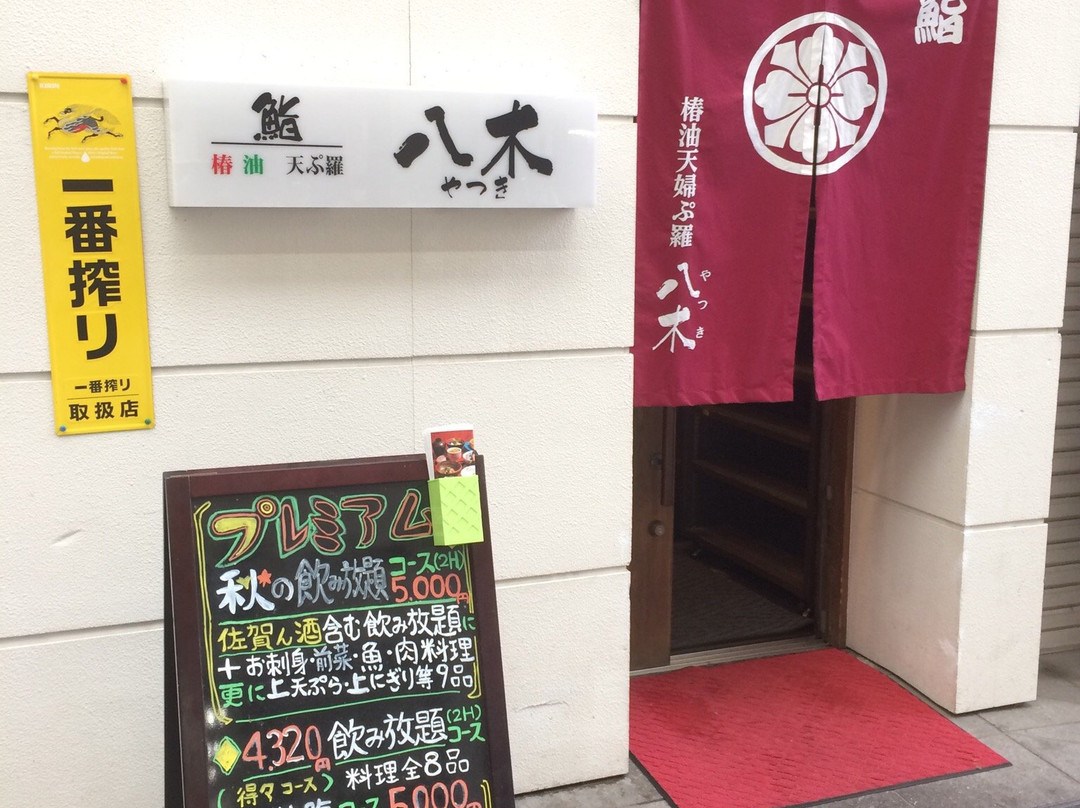 KIRIN
一番搾り
一番搾り
取扱店
鮨
椿油 天ぷ羅
八木
やつき
鮨
椿油天婦ぷ羅
八木
やつき
プレミアム
秋の飲み放題コース(2H)
5.000円
佐賀ん酒含む飲み放題に
+お刺身・前菜・魚・肉料理
更に上天ぷら・上にぎり等9品
4.320円飲み放題(2H)コース
(得々コース) 料理全8品
コース5.000円